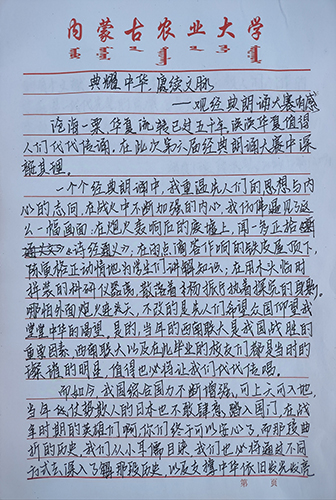 内蒙古农业大学
典耀中华,赓续文脉
——观经典朗诵大赛有感
沧海一粟,华夏流转已过五千年,泱泱华夏值得
人们代代传诵。在此次第六届经典朗诵大赛中深
一个个经典朗诵中,我重温先人们的思想与
内心的志向,在战火中不断加强的内心,我仿佛遇见了这
么一幅画面,在炮火轰响后的废墟上,闻一多正拾
诗经通义》;在雨点滴答作响的铁皮屋顶下,
陈岱孙正动情地为学生们讲解知识;在用木头临时
拼装的科研仪器旁,数沼着主杨振宁执着探究的身影,
哪怕外面炮火连天,不改的是先人们希望众国仰望我
堂堂中华的渴望。是的,当年的西南联大是我国战胜的
重要因素,西南联大以及在此毕业的校友们都是当时的
璀璨的明星,值得也必将让我们代代传唱。
而如今,我国综合国力不断增强,可上天可入地,
当年仗势欺人的日本也不敢肆意踏入国门,在战
年时期的英雄们啊,你们终于可以安心了,而那段曲
折的历史,我们从小耳濡目染,我们也必将通过不同
方式去深入了解那段历史,以及支撑中华依旧发展欣荣
第 页